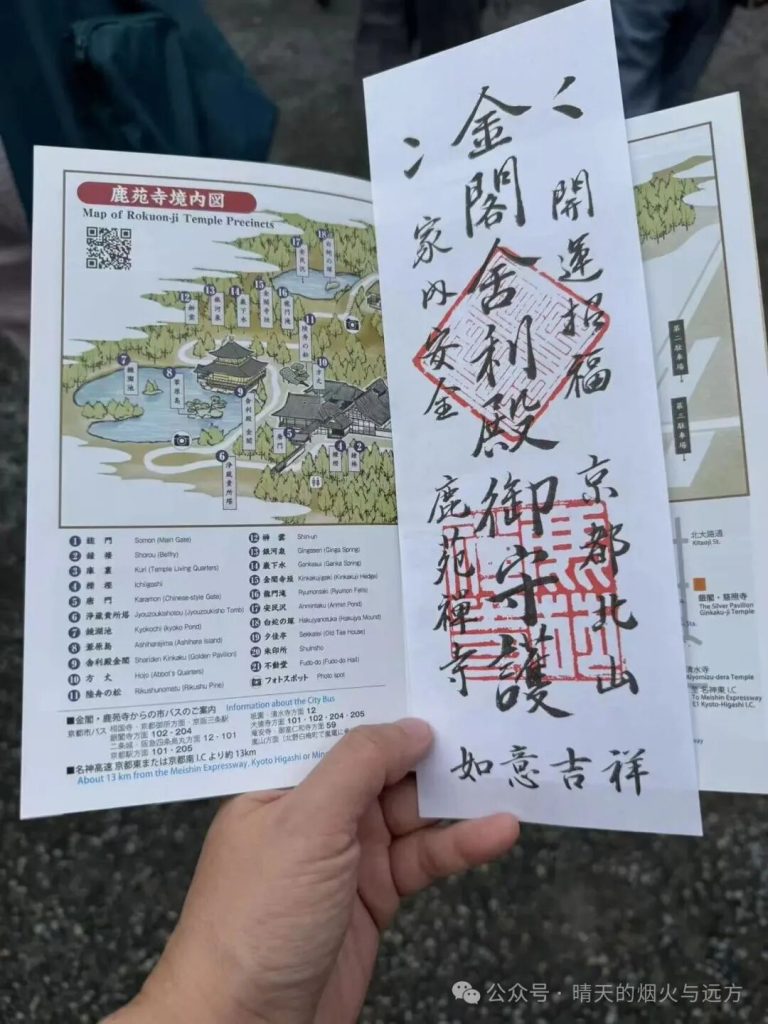 鹿苑寺境内図
Map of Rokuon-ji Temple Precincts
1 総門 Somon (Main Gate)
2 鐘楼 Shorou (Belfry)
3 庫裏 Kuri (Temple Living Quarters)
4 櫟樫 Ichiigashi
5 唐門 Karamon (Chinese-style Gate)
6 浄蔵貴所塔 Jyouzoukishotou (Jyouzoukisho Tomb)
7 鏡湖池 Kyokochi (kyoko Pond)
8 葦原島 Ashiharajima (Ashihara Island)
9 舎利殿金閣 Shariden Kinkaku (Golden Pavilion)
10 方丈 Hojo (Abbot's Quarters)
11 陸舟の松 Rikushunomatu (Rikushu Pine)
12 榊雲 Shin-un
13 銀河泉 Gingasen (Ginga Spring)
14 巌下水 Gankasui (Ganka Spring)
15 金閣寺垣 Kinkakujigaki (Kinkakuji Hedge)
16 龍門滝 Ryumontaki (Ryumon Falls)
17 安民沢 Anmintaku (Anmin Pond)
18 白蛇の塚 Hakujyanotuka (Hakujya Mound)
19 夕佳亭 Sekkatei (Old Tea House)
20 朱印所 Shuinsho
21 不動堂 Fudo-do (Fudo-do Hall)
フォトスポット Photo spot
■金閣・鹿苑寺からの市バスのご案内 Information about the City Bus
京都市バス
銀閣寺方面 102・204
京都駅方面 101・205
祇園・清水寺方面 12
大徳寺方面 101・102・204・205
竜安寺・御室仁和寺方面 59
■名神高速 京都東または京都南I.Cより約13km
About 13 km from the Meishin Expressway, Kyoto Higashi or
開運招福
金閣舎利殿御守護
家内安全
京都北山
鹿苑禅寺
如意吉祥
第二駐車場
第三駐車場
北大路通
Kitaoji St.
銀閣・慈照寺
The Silver Pavilion
Ginkaku-ji Temple
清水寺
Kiyomizu-dera Temple
至 名神東I.C
To Meishin Expressway
E1 Kyoto-Higashi I.C.
公众号・晴天的烟火与远方